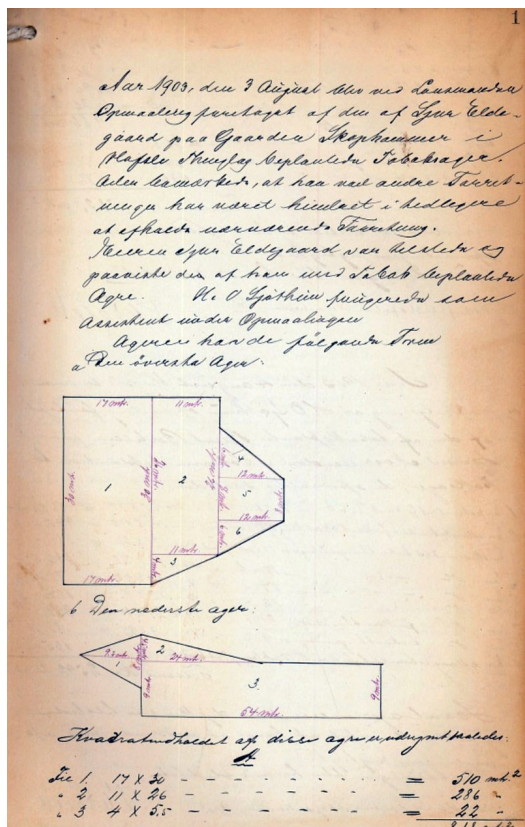 1
Aar 1903, den 3 August blev ved Lensmanden
Opmaaling foretaget af den af Sjur Elde-
gaard paa Gaarden Skophammer i
Hafslo Thinglag beplantede Tobaksager.
bemærkede, at han ved andre Forret-
ninger har været hindret i tidligere
at afholde nærværende Forretning.
Sjur Eldegaard var tilstede og
paaviste den af ham med Tobak beplantede
Agre. H. O Sjøtheim fungerede som
Assistent under Opmaalingen
Ageren har de følgende Form
a Den øverste Ager.
17 mtr. 11 mtr.
30 mtr. 1 30 mtr. 26 mtr. 2 26 mtr. 4 12 mtr.
5 8 mtr.
12 mtr.
6
11 mtr.
3 4 mtr.
17 mtr.
b Den nederste ager:
2
1 24 mtr.
9 mtr. 3. 9 mtr.
54 mtr.
Kvadratindholdet af disse agre udregnet saaledes:
A
Fig 1. 17 X 30 - - - - - = 510 mtr.²
" 2 11 X 26 - - - - - = 286 "
" 3 4 X 5,5 - - - - - = 22 "